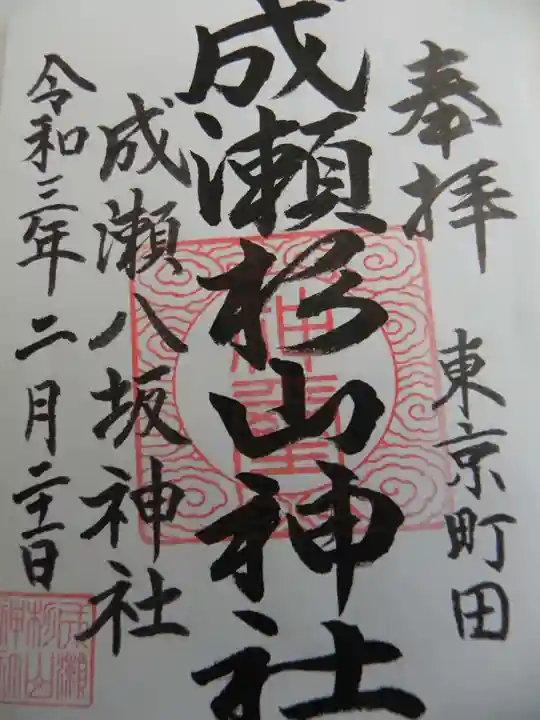 奉拝
東京町田
成瀬杉山神社
成瀬八坂神社
令和三年二月二十一日
神璽
成瀬杉山神社